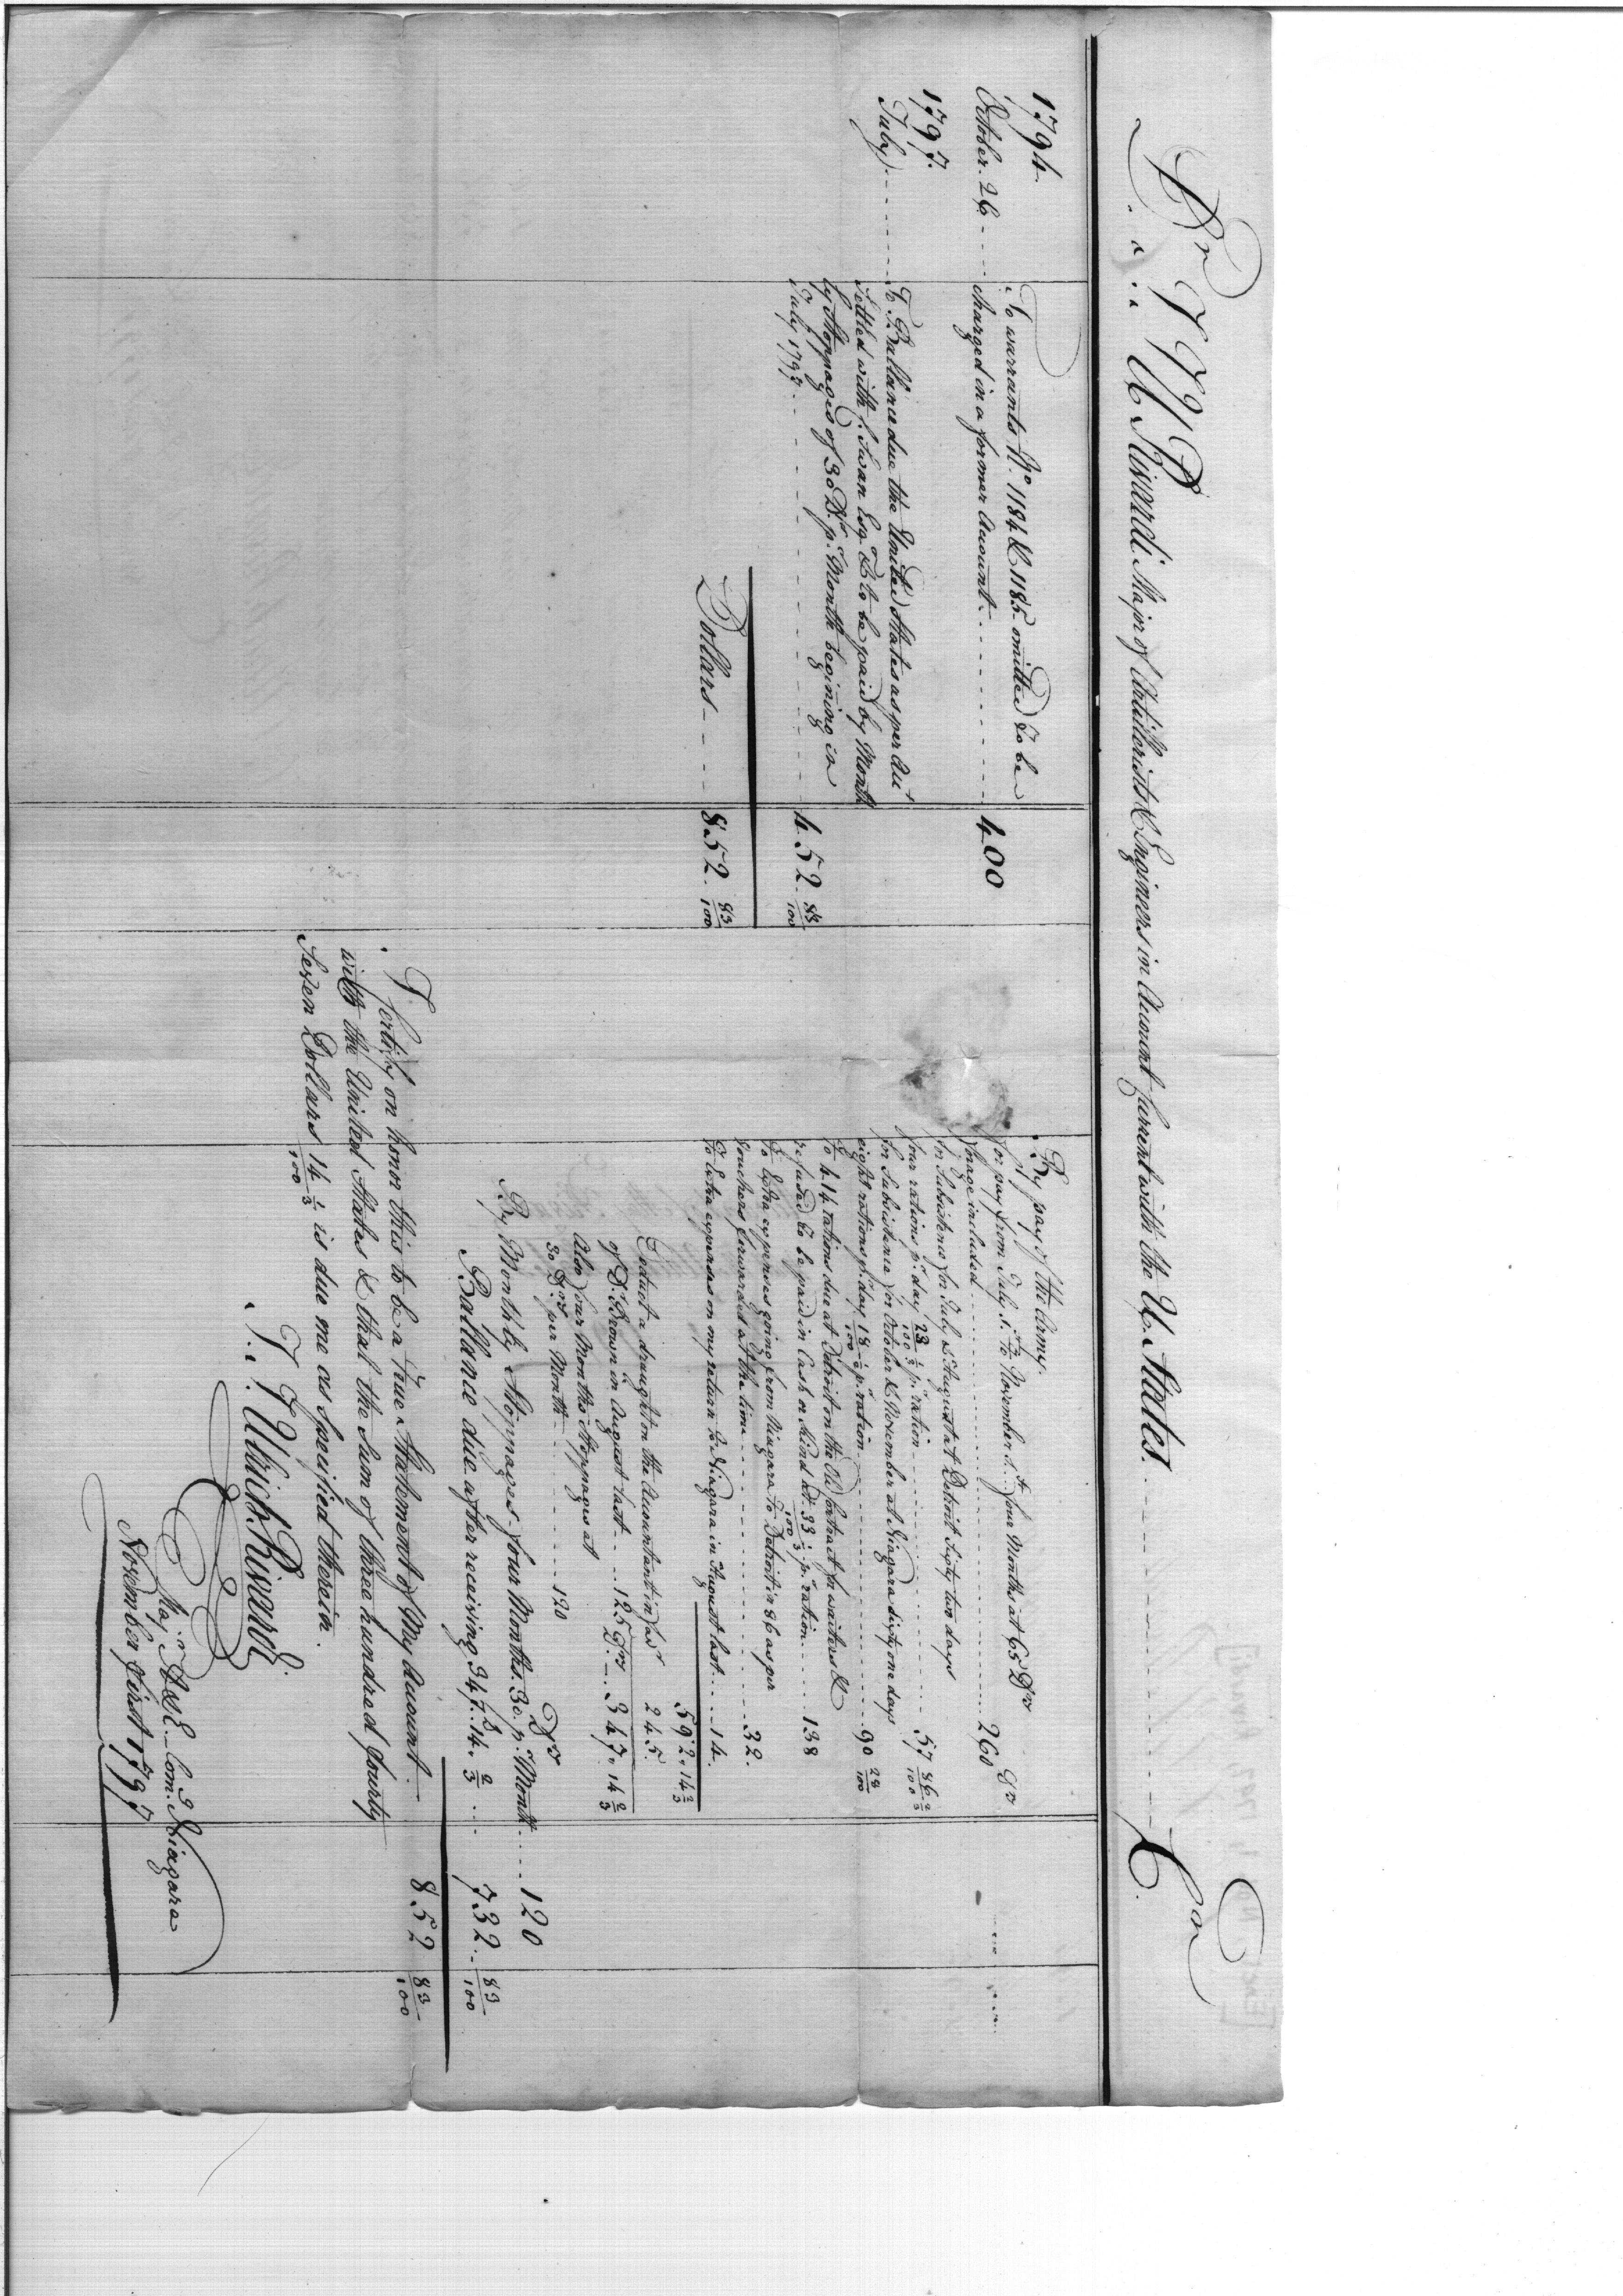 Dr J J U Rivardi Major of Artillerists & Engineers in Account Current with the U. States. Cr.
1794
October. 26 To warrants No. 1184 & 1185 omitted to be
charged in a former Account 400
1797.
July To Ballance due the United States as per Acct
Settled with C. Swan Esqr. & to be paid by Month
ly Stoppages of 30 Drs p. Month begining in
July 1797 452. 83/100
Dollars 852. 83/100
By pay of the Army.
for pay from July 1st to November 1st four Months at 65 Drs
forage included 260 Drs
for Subsistence for July & August at Detroit Sixty two days
four rations pr. day 23/100 1/3 pr. ration 57 86/100 2/3
for Subsistence for October & November at Niagara Sixty one days
eight rations pr. day 18/100 1/2 p. ration 90 28/100
To 414 rations due at Detroit on the Old Contract for waiters &
refused to be paid in Cash or kind at 33/100 1/3 pr. ration 138
To Extra expenses going from Niagara to Detroit in 86 as per
Vouchers forwarded at the time 32.
To Extra expenses on my return to Niagara in August last 14.
592. 14 2/3
Deduct a draught on the Accountant in favr
of Dr. Brown in August last 125 Drs
Also four Months Stoppages at
30 Drs per Month 120
245.
347. 14 2/3
By Monthly Stoppages four Months. 30. p. Month 120
Ballance due after receiving 347 Drs. 14. 2/3 732. 83/100
852 83/100
I Certify on honor this to be a True Statement of My Account
with the United States & that the Sum of three hundred fourty
Seven Dollars 14/100 2/3 is due me as Specified therein.
J. J. Ulrich Rivardi.
Majr. A & E Com. Niagara
November first 1797